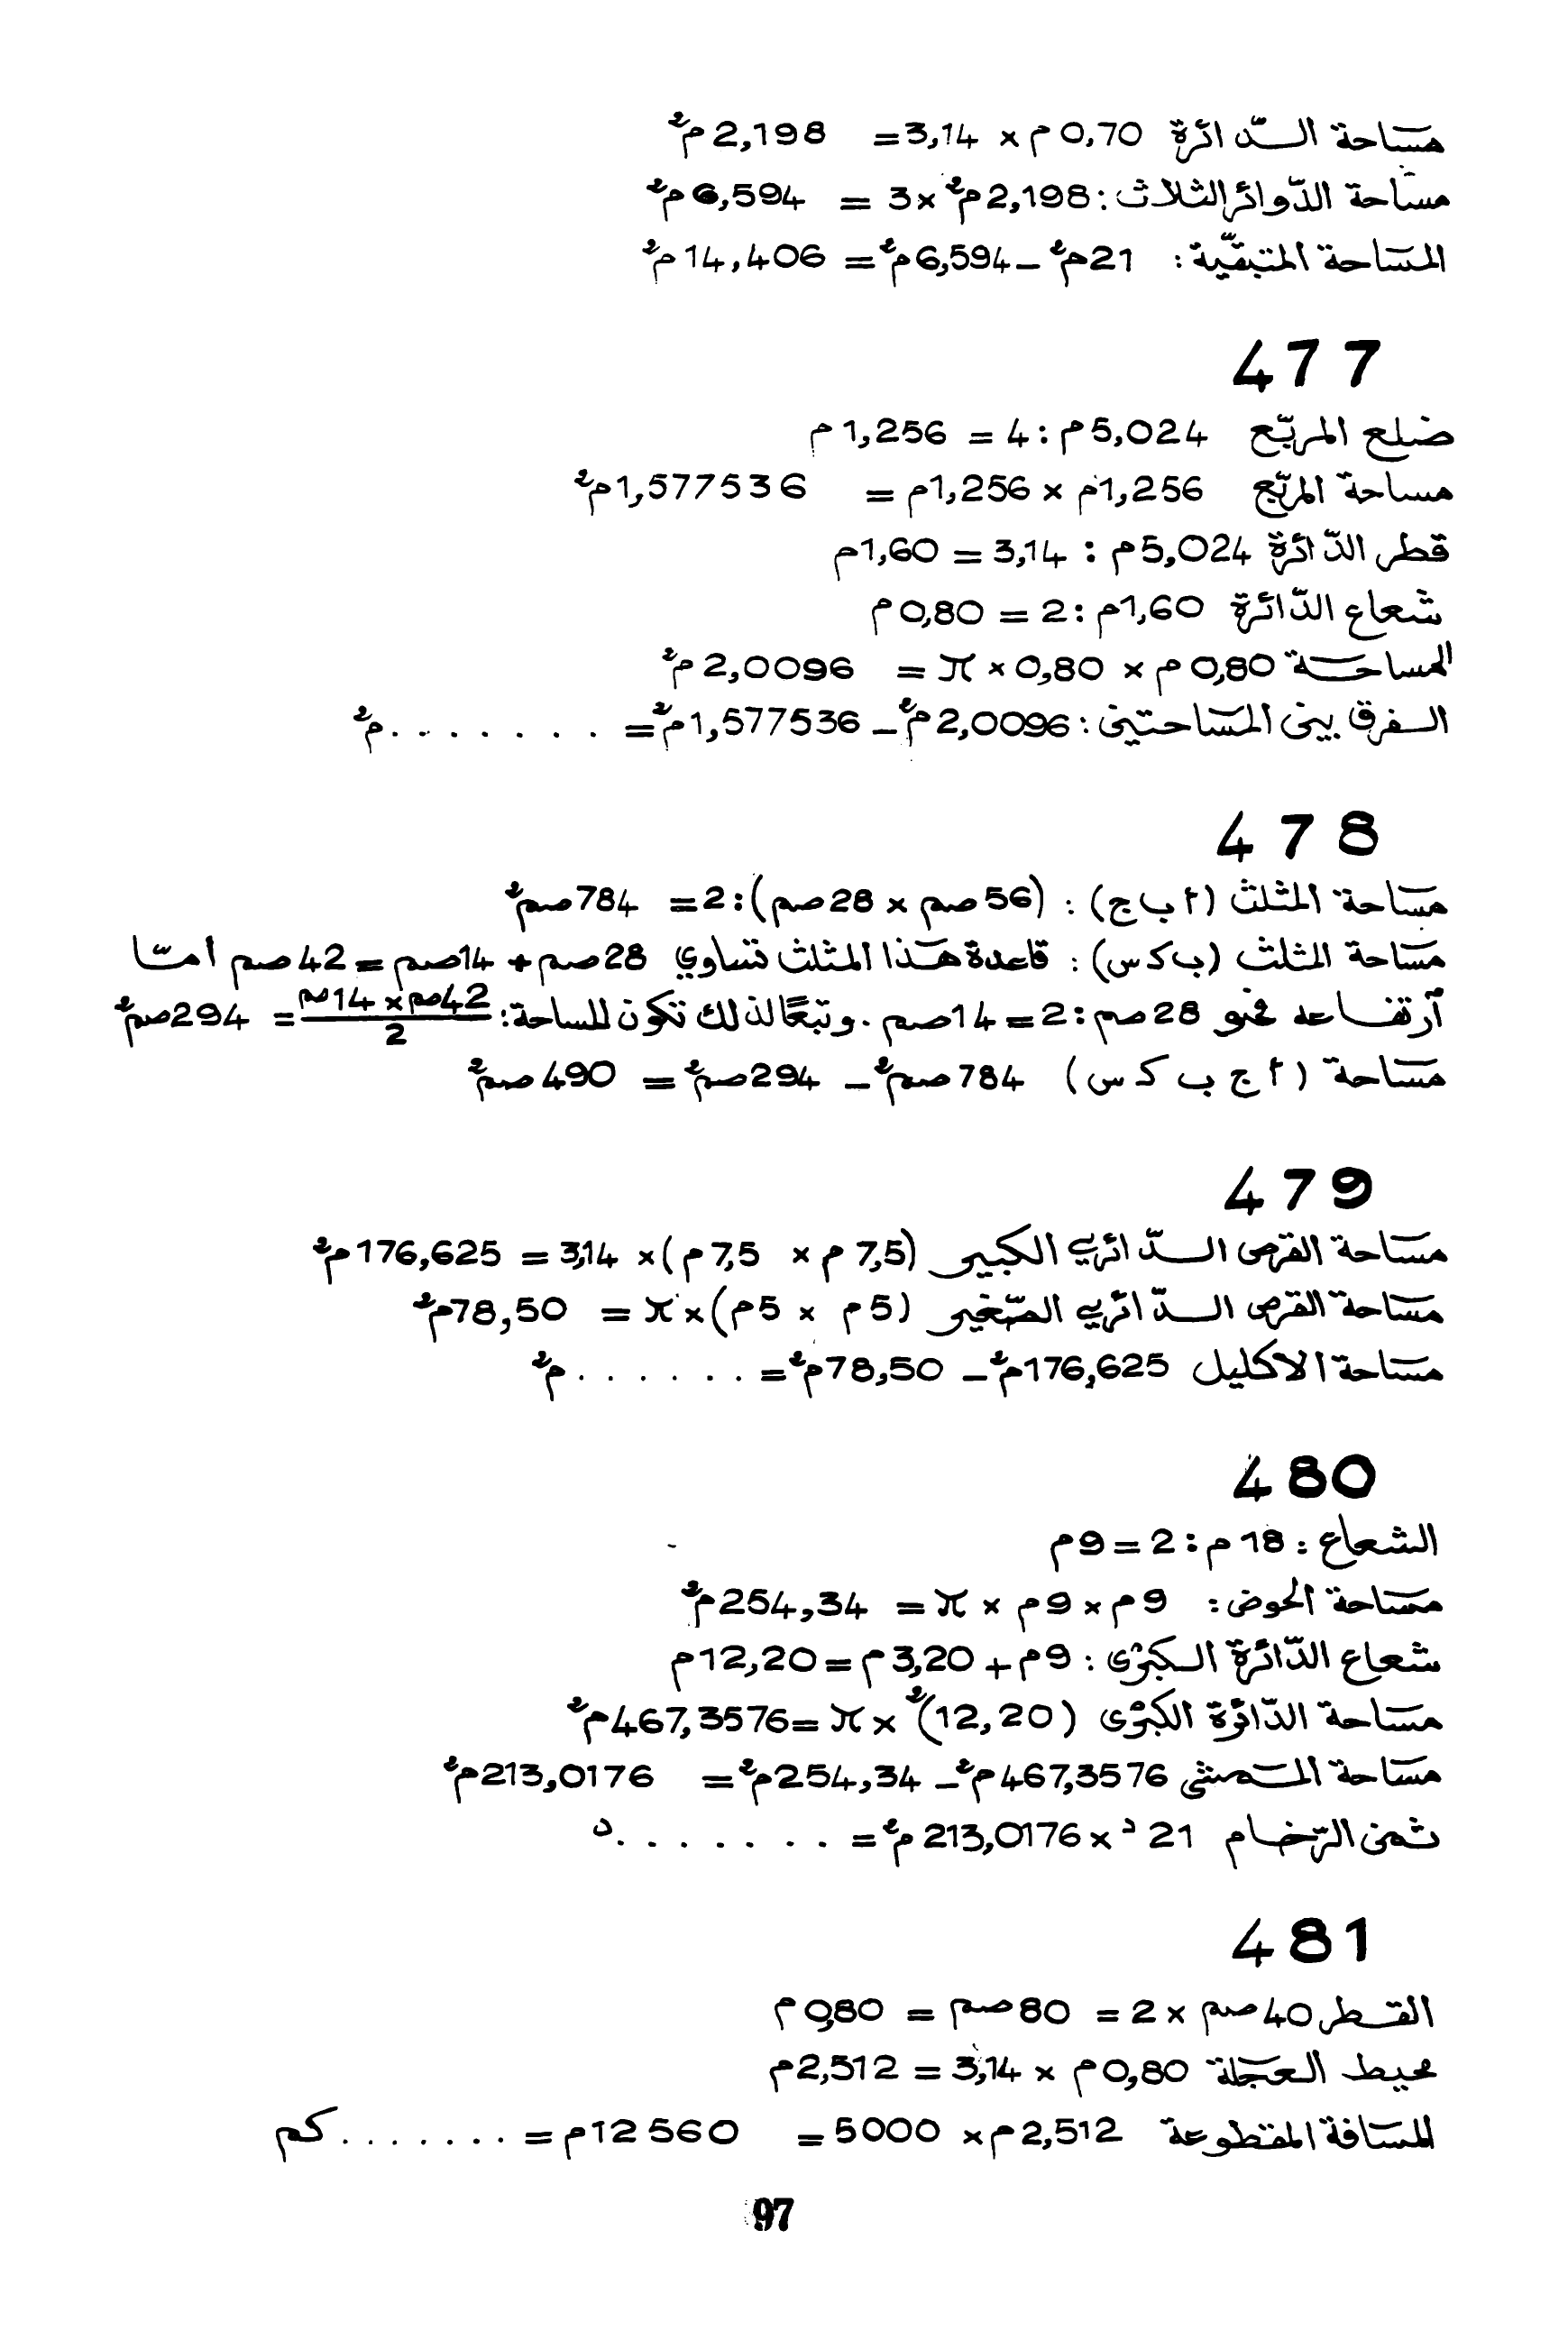 مساحة الدّائرة 0,70 م × 3,14 = 2,198 م²
مساحة الدّوائر الثلاث : 2,198 م² × 3 = 6,594 م²
المساحة المتبقّية : 21 م² – 6,594 م² = 14,406 م²
477
ضلع المربّع 5,024 م : 4 = 1,256 م
مساحة المربّع 1,256 م × 1,256 م = 1,577536 م²
قطر الدّائرة 5,024 م : 3,14 = 1,60 م
شعاع الدّائرة 1,60 م : 2 = 0,80 م
المساحة 0,80 م × 0,80 × π = 2,0096 م²
الفرق بين المساحتين : 2,0096 م² – 1,577536 م² = ........ م²
478
مساحة المثلث (أ ب ج) : (56 صم × 28 صم) : 2 = 784 صم²
مساحة المثلث (ب ك س) : قاعدة هذا المثلث تساوي 28 صم + 14 صم = 42 صم أمّا
آرتفاعه فهو 28 صم : 2 = 14 صم . وتبعًا لذلك تكون المساحة : 42 صم × 14 صم / 2 = 294 صم²
مساحة (أ ج ب ك س) 784 صم² – 294 صم² = 490 صم²
479
مساحة القرص الدّائري الكبير (7,5 م × 7,5 م) × 3,14 = 176,625 م²
مساحة القرص الدّائري الصّغير (5 م × 5 م) × π = 78,50 م²
مساحة الاكليل 176,625 م² – 78,50 م² = ...... م²
480
الشعاع : 18 م : 2 = 9 م
مساحة الحوض : 9 م × 9 م × π = 254,34 م²
شعاع الدّائرة الكبرى : 9 م + 3,20 م = 12,20 م
مساحة الدّائرة الكبرى (12,20)² × π = 467,3576 م²
مساحة الممشى 467,3576 م² – 254,34 م² = 213,0176 م²
ثمن الرّخام 21 د × 213,0176 م² = ........ د
481
القطر 40 صم × 2 = 80 صم = 0,80 م
محيط العجلة 0,80 م × 3,14 = 2,512 م
المسافة المقطوعة 2,512 م × 5000 = 12 560 م = ....... كم
97